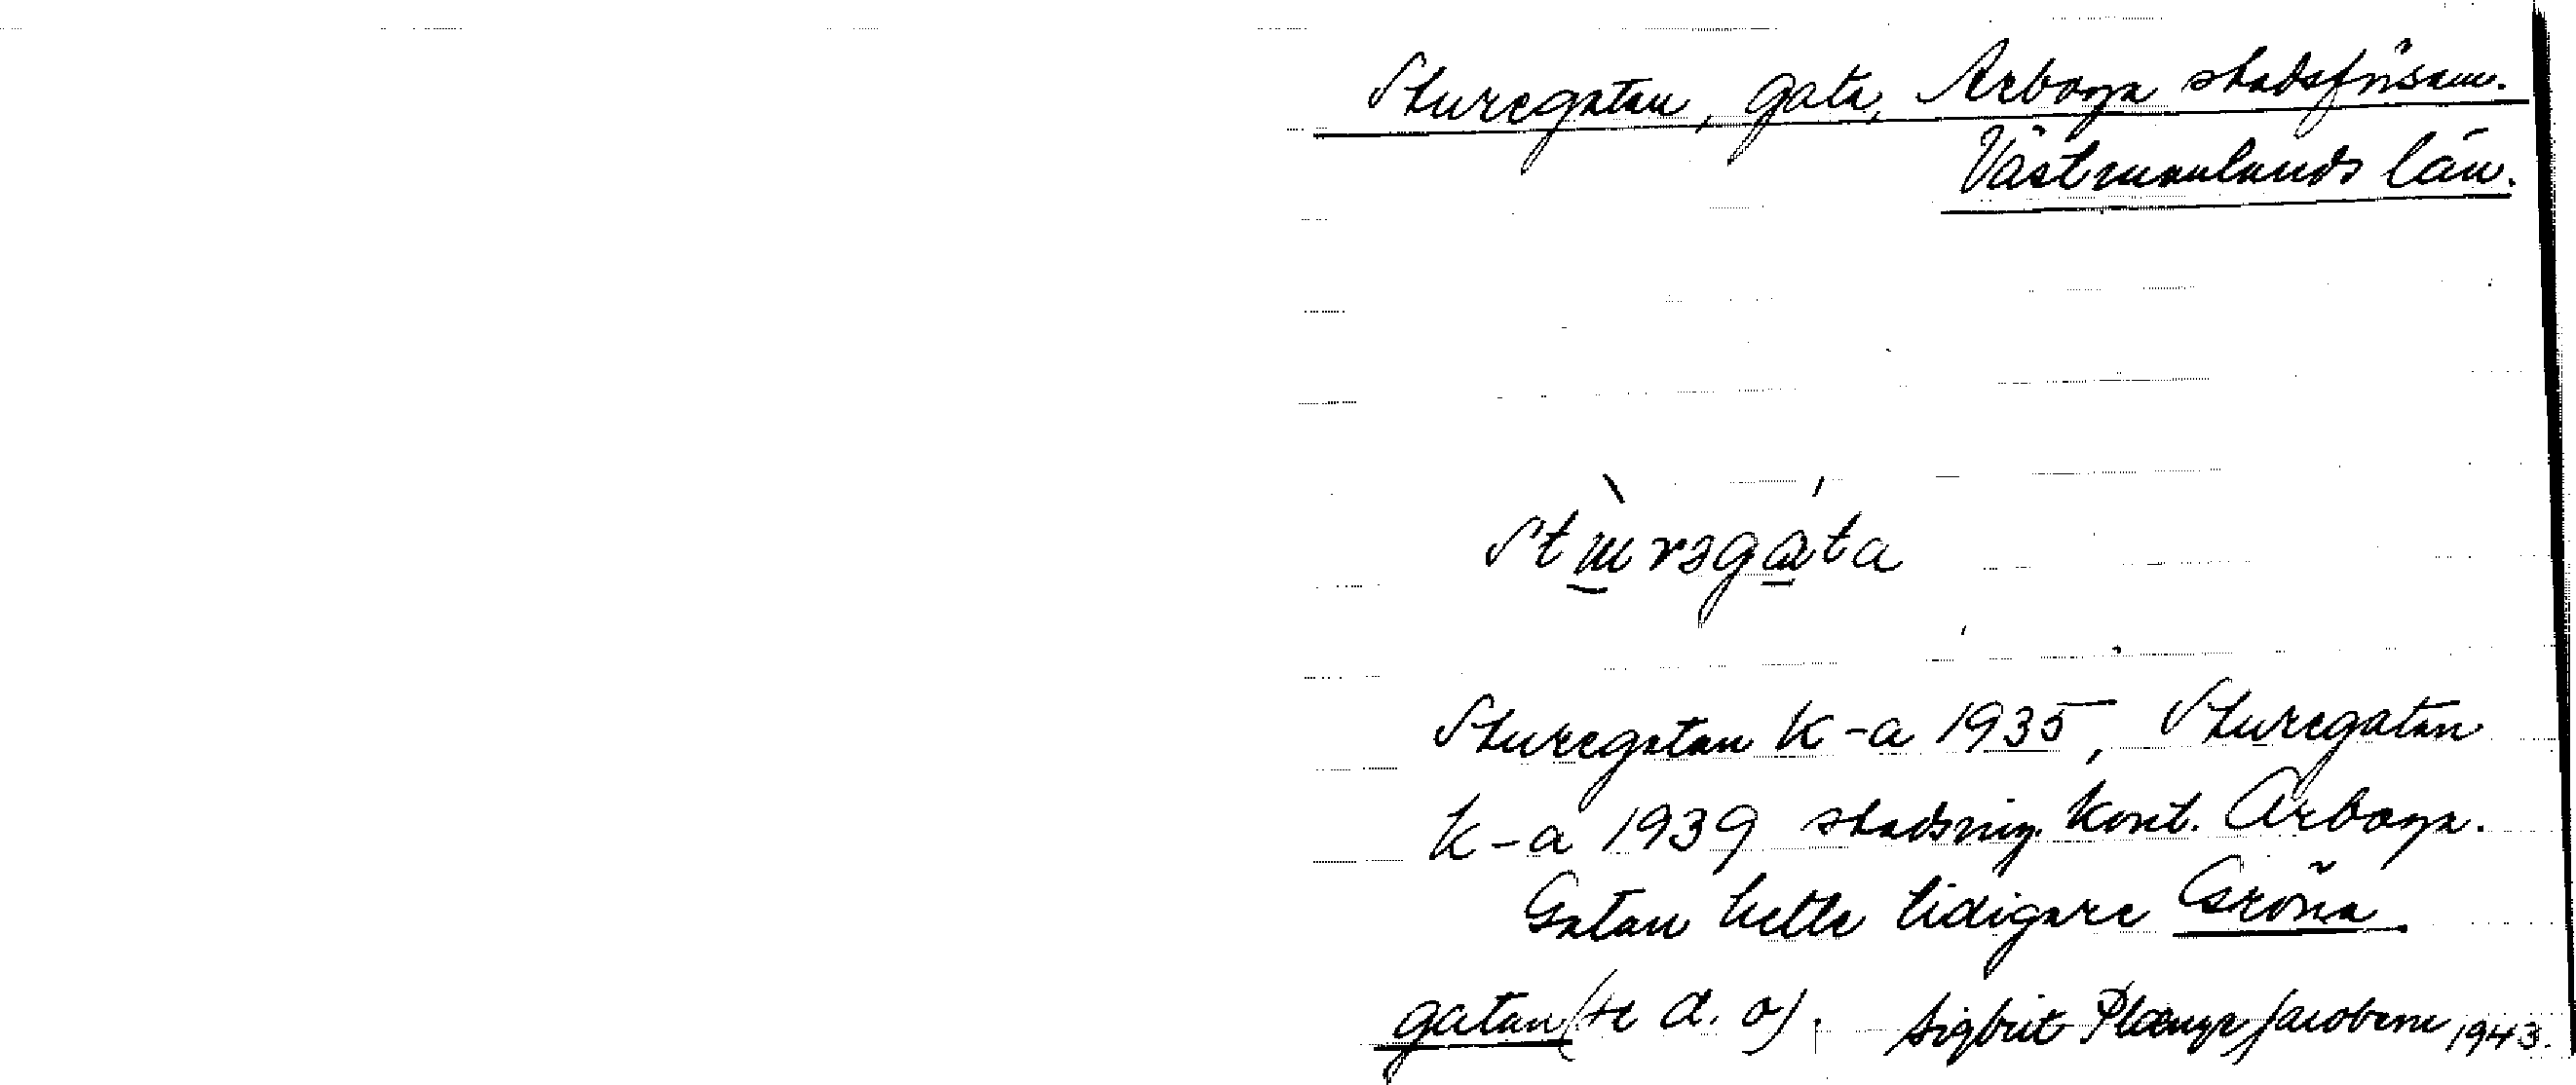 Sturegatan, gata, Arboga stadsförsam.
Västmanlands län.
Stɯ̀rəgáta
Sturegatan K-a 1935, Sturegatan
K-a 1939 stadsing. kont. Arboga.
Gatan hette tidigare Gröna
gatan (se d. o).
Sigbrit Plænge Jacobson 1943.